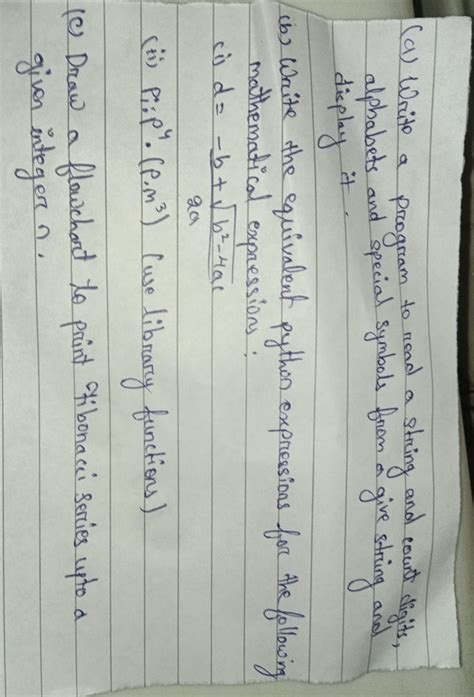 (a) Write a program to read a string and count digits,
alphabets and special symbols from a give string and
display it.
(b) Write the equivalent python expressions for the following
mathematical expressions:
(i) d = -b + √b²-4ac
2a
(ii) (P.m³) (use library functions)
(c) Draw a flowchart to print fibonacci series upto a
given integer n.